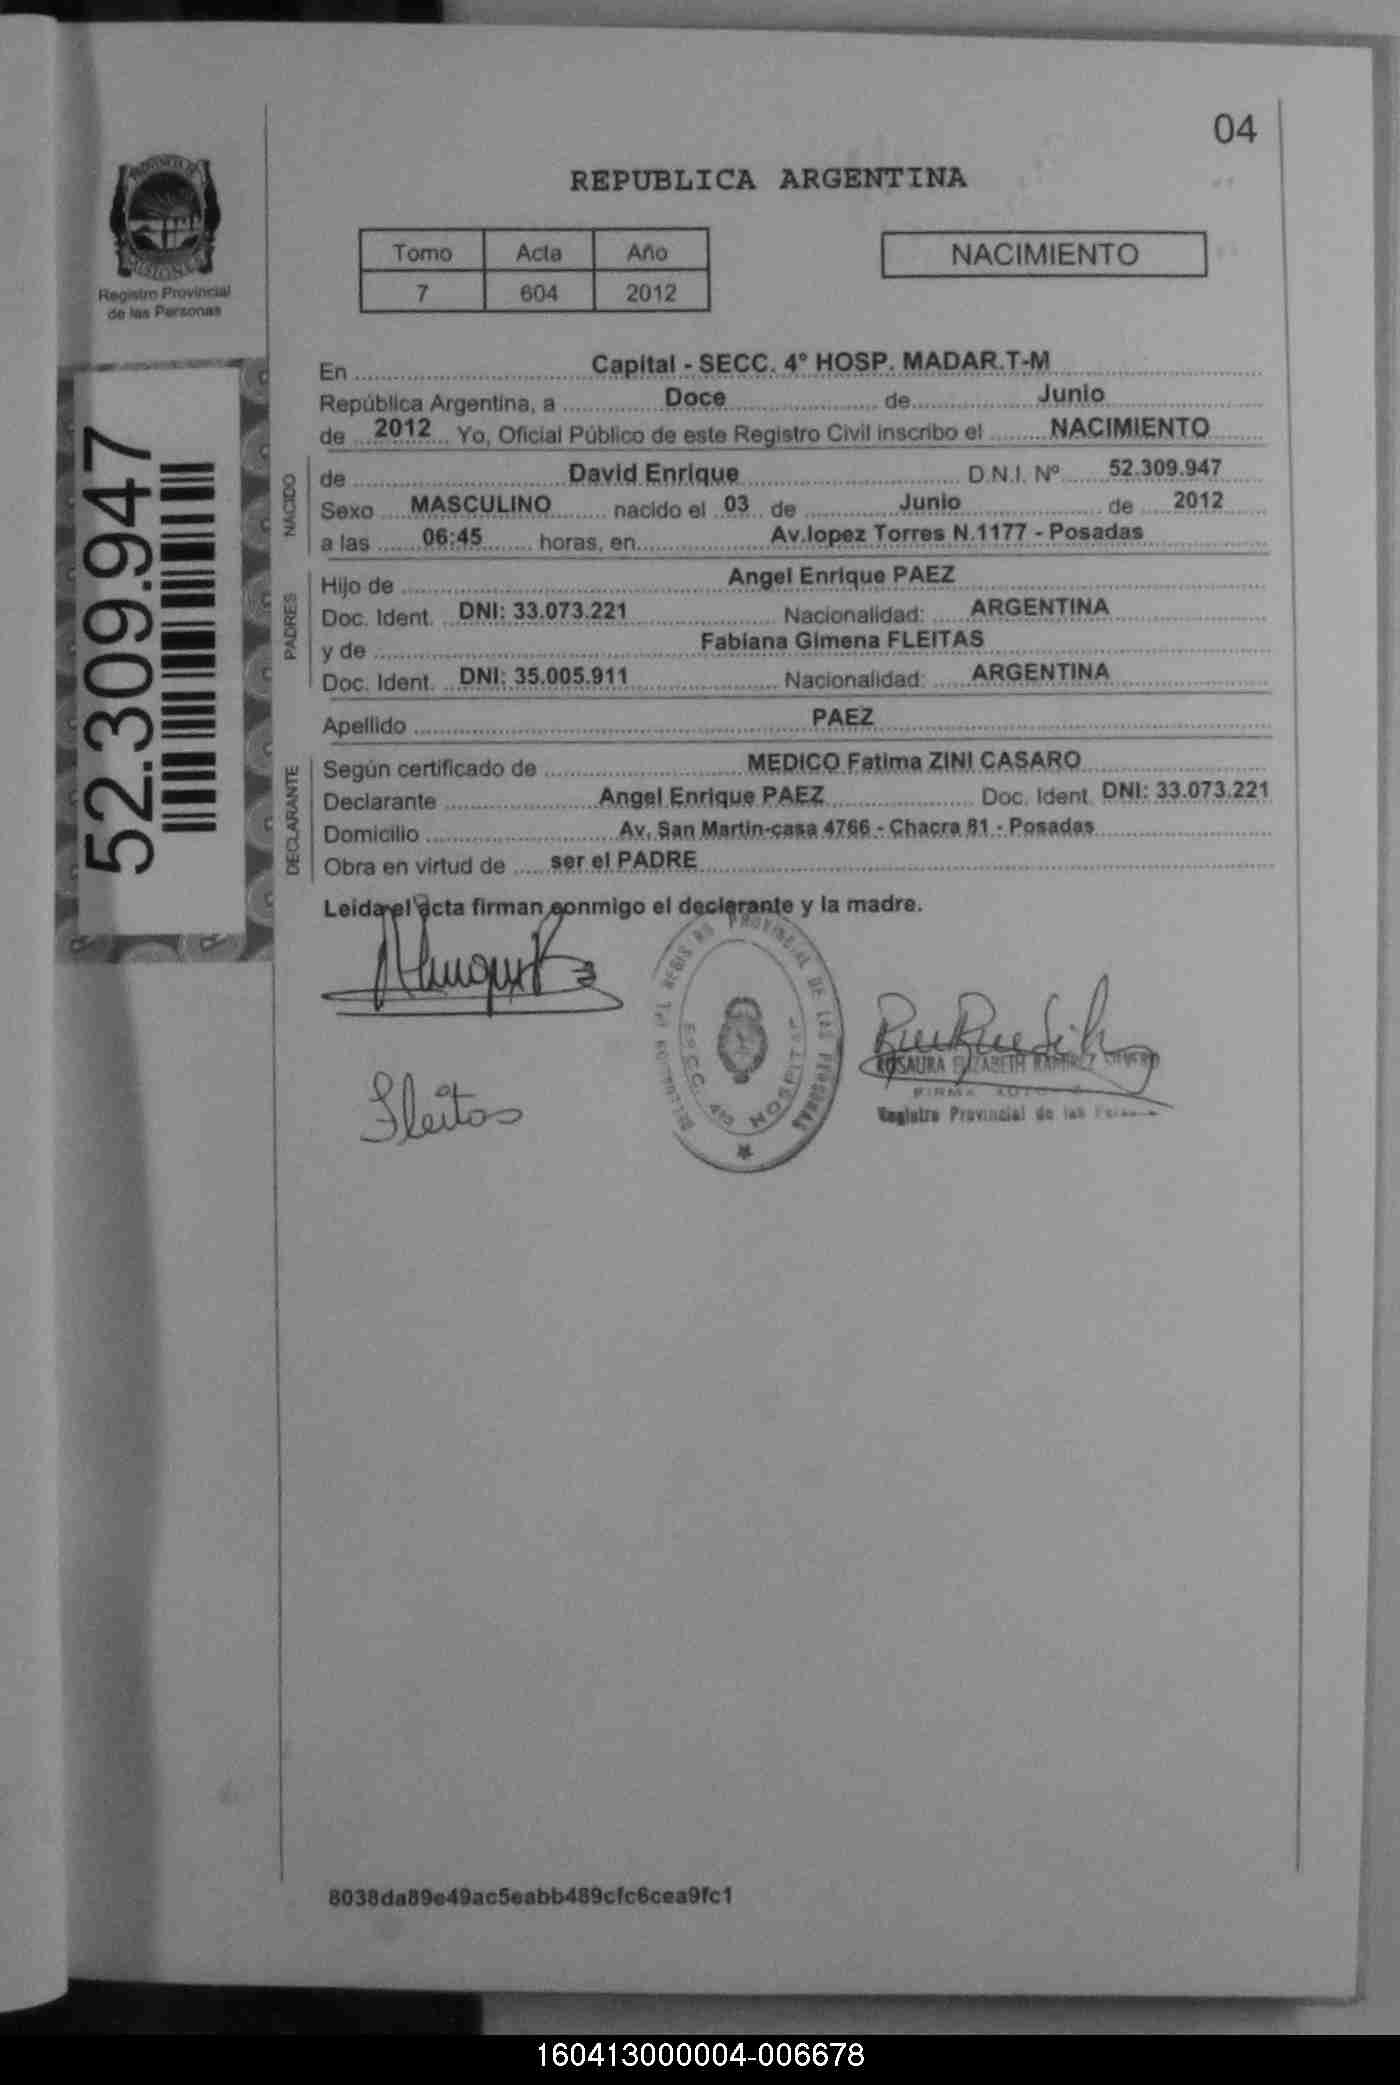 04
PROVINCIA DE
MISIONES
Registro Provincial
de las Personas
REPUBLICA ARGENTINA
Tomo Acta Año
7 604 2012
NACIMIENTO
52.309.947
En Capital - SECC. 4° HOSP. MADAR.T-M
República Argentina, a Doce de Junio
de 2012 Yo, Oficial Público de este Registro Civil inscribo el NACIMIENTO
NACIDO
de David Enrique D.N.I. Nº 52.309.947
Sexo MASCULINO nacido el 03 de Junio de 2012
a las 06:45 horas, en Av.lopez Torres N.1177 - Posadas
PADRES
Hijo de Angel Enrique PAEZ
Doc. Ident. DNI: 33.073.221 Nacionalidad: ARGENTINA
y de Fabiana Gimena FLEITAS
Doc. Ident. DNI: 35.005.911 Nacionalidad: ARGENTINA
Apellido PAEZ
DECLARANTE
Según certificado de MEDICO Fatima ZINI CASARO
Declarante Angel Enrique PAEZ Doc. Ident. DNI: 33.073.221
Domicilio Av. San Martin-casa 4766 - Chacra 81 - Posadas
Obra en virtud de ser el PADRE
Leida el acta firman conmigo el declarante y la madre.
PROVINCIAL DE LAS PERSONAS
SECC. 4º HOSPITAL
Fleitas
ROSAURA ELIZABETH RAMIREZ
FIRMA
Registro Provincial de las
8038da89e49ac5eabb489cfc6cea9fc1
160413000004-006678